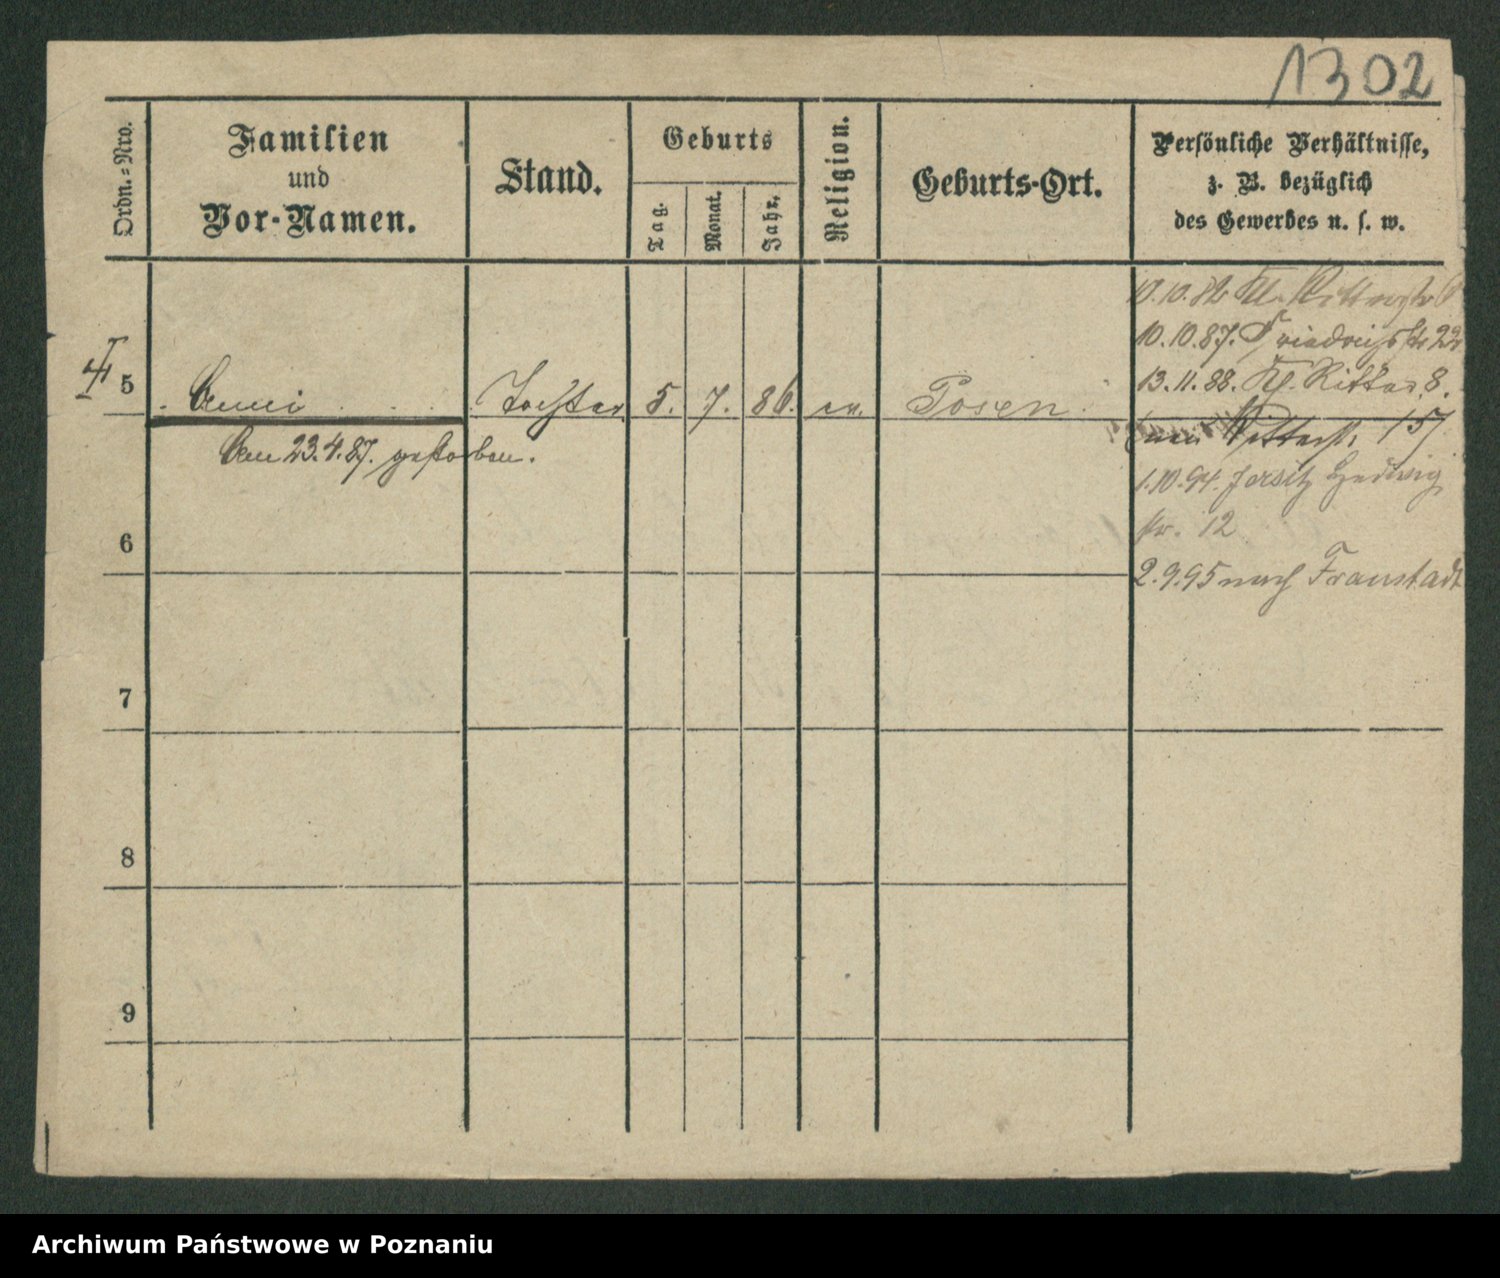 1302
Ordn.=Nro.
Familien
und
Vor-Namen.
Stand.
Geburts
Tag.
Monat.
Jahr.
Religion.
Geburts-Ort.
Persönliche Verhältnisse,
z. B. bezüglich
des Gewerbes u. s. w.
5 Anni Tochter 5. 7. 86. ev. Posen.
Am 23.4.87. gestorben.
6
7
8
9
Kl. Ritterstr
10.10.87. Friedrichstr 22
13.11.88. Kl. Ritter 8.
Ritterstr. 15
1.10.94. Jersitz Hedwig
str. 12
2.9.95 nach Fraustadt
Archiwum Państwowe w Poznaniu